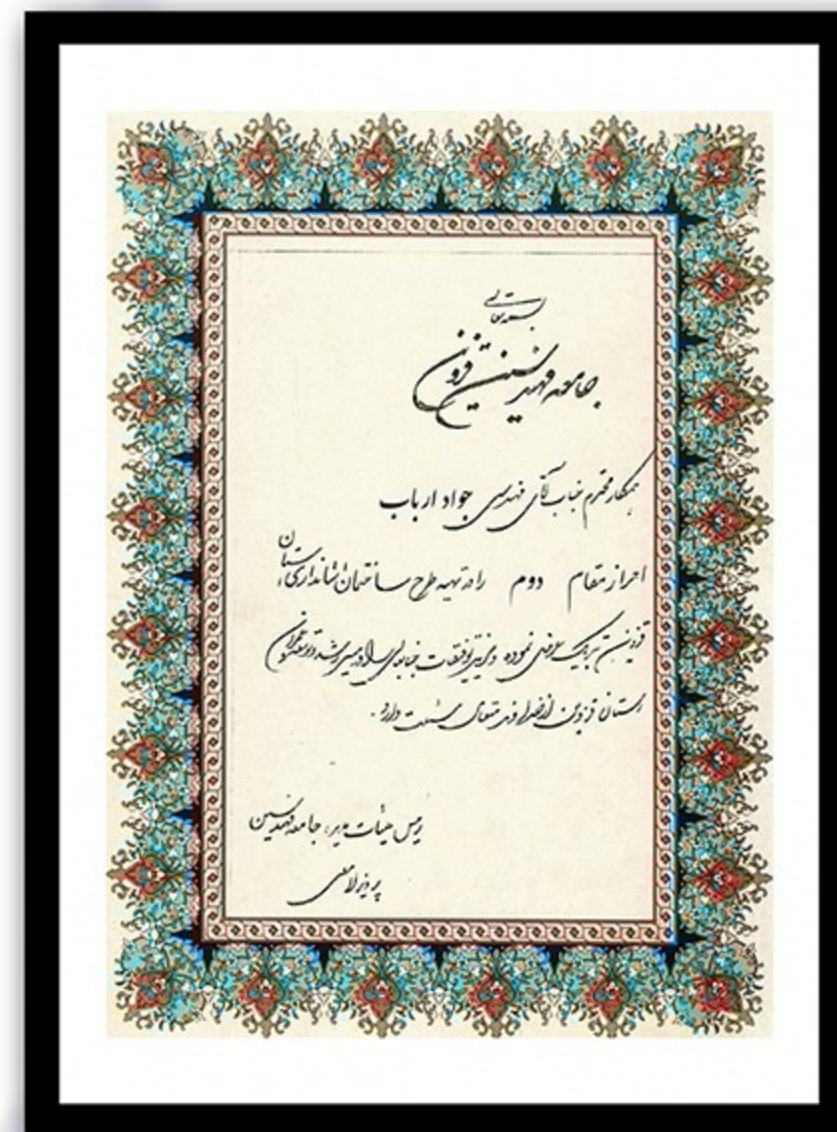 بسمه تعالی
جامعه مهندسین قزوین
همکار محترم جناب آقای مهندس جواد ارباب
احراز مقام دوم را در تهیه طرح ساختمان استانداری استان
قزوین تبریک عرض نموده و مزید توفیقات جنابعالی را در مسیر رشد و توسعه و عمران
استان قزوین از خداوند متعال مسئلت دارد.
رئیس هیات مدیره جامعه مهندسین
پرویز لامعی